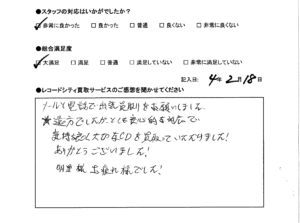 ●スタッフの対応はいかがでしたか?
□非常に良かった □良かった □普通 □良くない □非常に良くない
●総合満足度
□大満足 □満足 □普通 □満足していない □非常に満足していない
記入日: 4年2月18日
●レコードシティ買取サービスのご感想を聞かせてください
メールと電話で出張買取りをお願いしました。
遠方でしたが、とても良心的な対応で、
気持ち良く大切なCDを買取っていただけました!
ありがとうございました!
様 お疲れ様でした!